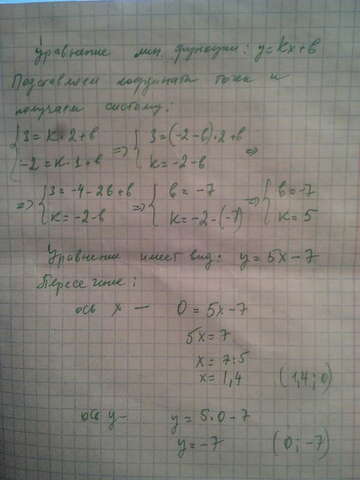 Уравнение лин. функции: y=kx+b
Подставляем координаты точки и
получаем систему:
{3=k·2+b => {3=(-2-b)·2+b =>
{-2=k·1+b {k=-2-b
=> {3=-4-2b+b => {b=-7 => {b=-7
{k=-2-b {k=-2-(-7) {k=5
Уравнение имеет вид: y=5x-7
Пересечение:
ось x — 0=5x-7
5x=7
x=7:5
x=1,4 (1,4;0)
ось y — y=5·0-7
y=-7 (0;-7)